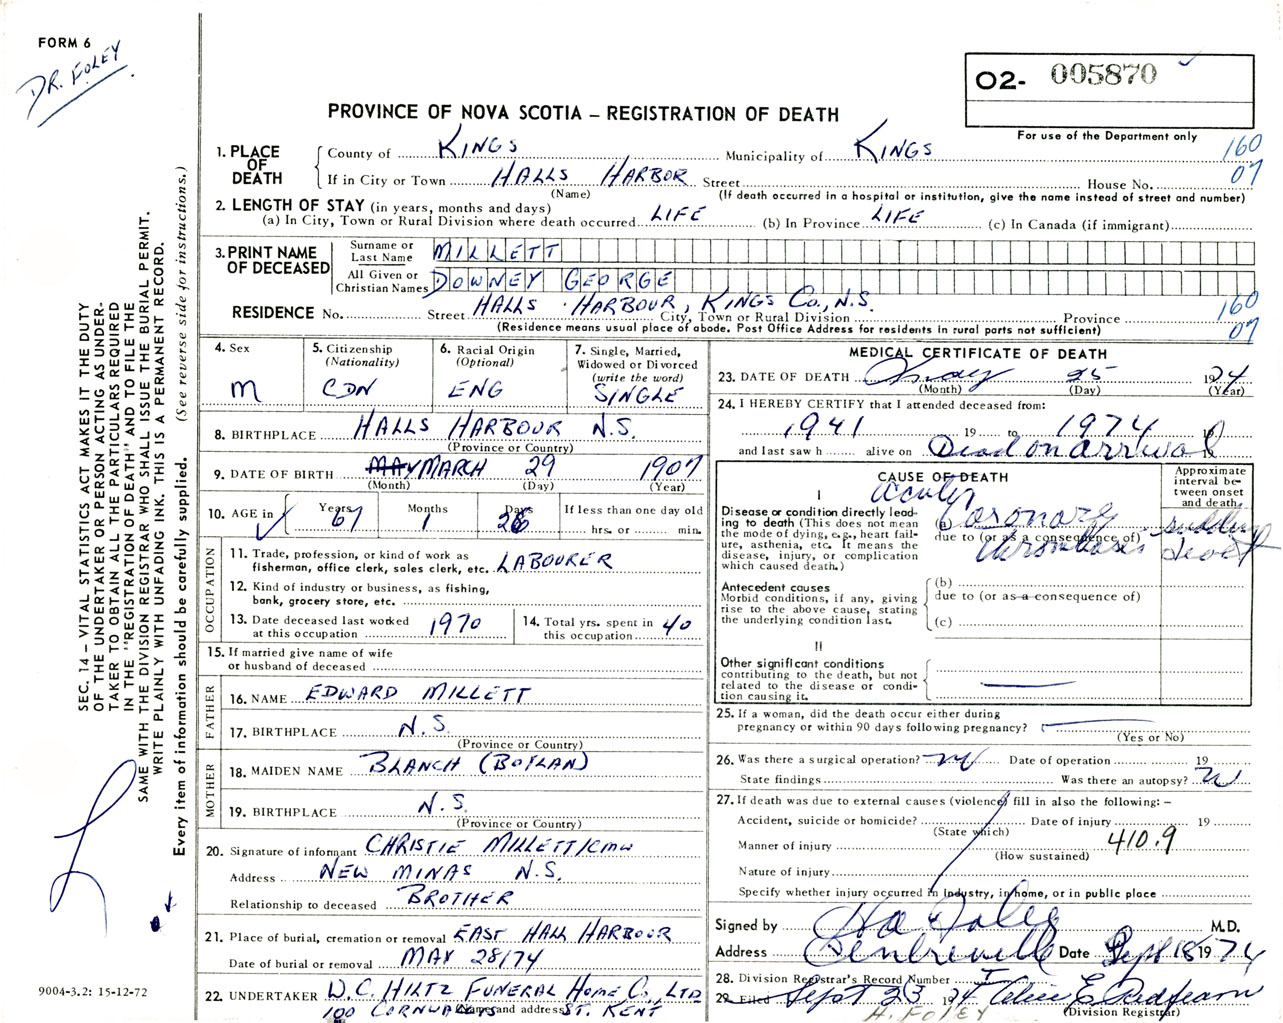 FORM 6
DR. FOLEY
02- 005870
For use of the Department only
PROVINCE OF NOVA SCOTIA – REGISTRATION OF DEATH
1. PLACE OF DEATH
County of KINGS Municipality of KINGS 160
If in City or Town HALLS HARBOR Street House No. 07
(Name) (If death occurred in a hospital or institution, give the name instead of street and number)
2. LENGTH OF STAY (in years, months and days)
(a) In City, Town or Rural Division where death occurred LIFE (b) In Province LIFE (c) In Canada (if immigrant)
3. PRINT NAME OF DECEASED
Surname or Last Name MILLETT
All Given or Christian Names DOWNEY GEORGE
RESIDENCE No. Street HALLS HARBOUR, KINGS CO., N.S. City, Town or Rural Division Province 160
(Residence means usual place of abode. Post Office Address for residents in rural parts not sufficient) 07
4. Sex
M
5. Citizenship
(Nationality)
CDN
6. Racial Origin
(Optional)
ENG
7. Single, Married,
Widowed or Divorced
(write the word)
SINGLE
8. BIRTHPLACE HALLS HARBOUR N.S.
(Province or Country)
9. DATE OF BIRTH MAY MARCH 29 1907
(Month) (Day) (Year)
10. AGE in Years 67 Months 1 Days 26 If less than one day old
hrs. or min.
OCCUPATION
11. Trade, profession, or kind of work as
fisherman, office clerk, sales clerk, etc. LABOURER
12. Kind of industry or business, as fishing,
bank, grocery store, etc.
13. Date deceased last worked
at this occupation 1970
14. Total yrs. spent in
this occupation 40
15. If married give name of wife
or husband of deceased
FATHER
16. NAME EDWARD MILLETT
17. BIRTHPLACE N.S.
(Province or Country)
MOTHER
18. MAIDEN NAME BLANCH (BOYLAN)
19. BIRTHPLACE N.S.
(Province or Country)
20. Signature of informant CHRISTIE MILLETT/CMW
Address NEW MINAS N.S.
Relationship to deceased BROTHER
21. Place of burial, cremation or removal EAST HALL HARBOUR
Date of burial or removal MAY 28/74
22. UNDERTAKER W.C. HILTZ FUNERAL HOME CO., LTD
(Name and address)
100 CORNWALLIS ST. KENT
MEDICAL CERTIFICATE OF DEATH
23. DATE OF DEATH May 25 1974
(Month) (Day) (Year)
24. I HEREBY CERTIFY that I attended deceased from:
1941 19 to 1974 19
and last saw h alive on Dead on arrival 19
CAUSE OF DEATH
Approximate
interval be-
tween onset
and death
I
Disease or condition directly lead-
ing to death (This does not mean
the mode of dying, e.g., heart fail-
ure, asthenia, etc. It means the
disease, injury, or complication
which caused death.)
Acute
(a) Coronary
due to (or as a consequence of)
thrombosis
sudden
death
Antecedent causes
Morbid conditions, if any, giving
rise to the above cause, stating
the underlying condition last.
(b)
due to (or as a consequence of)
(c)
II
Other significant conditions
contributing to the death, but not
related to the disease or condi-
tion causing it.
25. If a woman, did the death occur either during
pregnancy or within 90 days following pregnancy?
(Yes or No)
26. Was there a surgical operation? Date of operation 19
State findings Was there an autopsy?
27. If death was due to external causes (violence) fill in also the following: –
Accident, suicide or homicide? Date of injury 19
(State which)
Manner of injury 410.9
(How sustained)
Nature of injury
Specify whether injury occurred in Industry, in home, or in public place
Signed by Foley M.D.
Address Centreville Date Sept 18 1974
28. Division Registrar's Record Number
29. Filed Sept 23 1974 E. Redfearn
(Division Registrar)
H. FOLEY
SEC. 14 – VITAL STATISTICS ACT MAKES IT THE DUTY
OF THE UNDERTAKER OR PERSON ACTING AS UNDER-
TAKER TO OBTAIN ALL THE PARTICULARS REQUIRED
IN THE "REGISTRATION OF DEATH" AND TO FILE THE
SAME WITH THE DIVISION REGISTRAR WHO SHALL ISSUE THE BURIAL PERMIT.
WRITE PLAINLY WITH UNFADING INK. THIS IS A PERMANENT RECORD.
Every item of information should be carefully supplied. (See reverse side for instructions.)
9004-3.2: 15-12-72